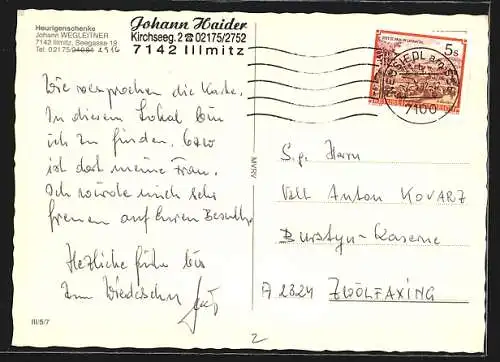 Heurigenschenke
Johann WEGLEITNER
7142 Illmitz, Seegasse 19
Tel. 02175/
Johann Haider
Kirchseeg. 2 ☎ 02175/2752
7142 Illmitz
5s
7100
Wie versprochen die Karte.
In diesem Lokal bin
ich zu finden, bzw
ist dort meine Frau.
Ich würde mich sehr
freuen auf Euren Besuch
Herzliche Grüße bis
zum Wiedersehn
MVRV
S.g. Herrn
Vzlt Anton KOVARZ
Burstyn-Kaserne
A 2324 ZWÖLFAXING
III/5/7
2